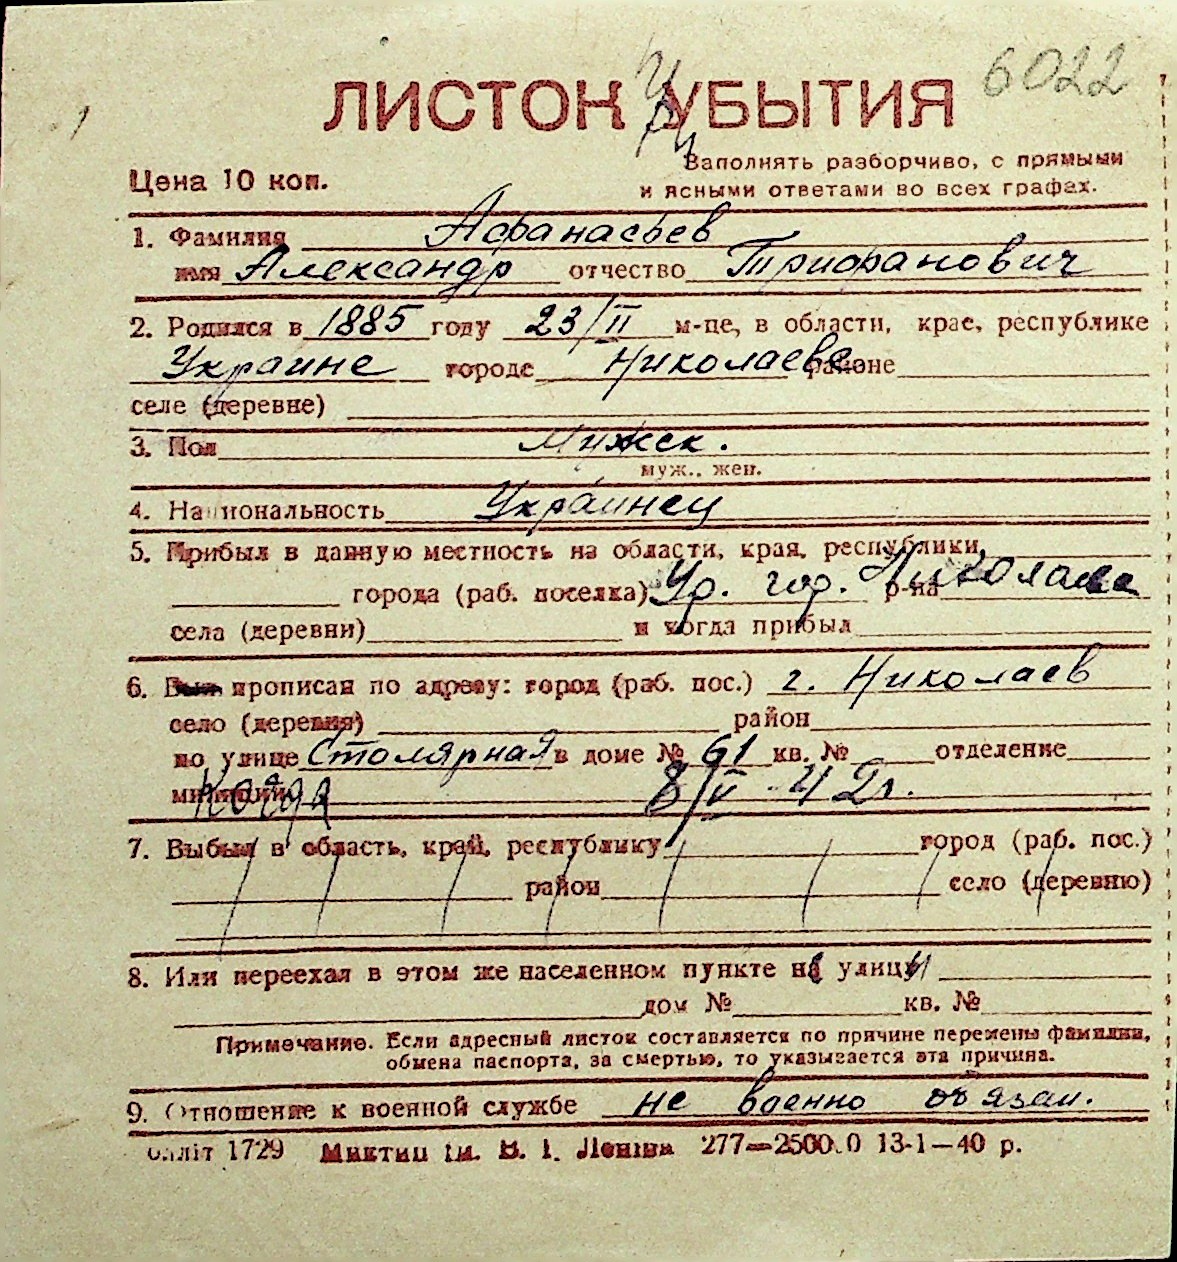 6022
ЛИСТОК УБЫТИЯ
Цена 10 коп.
Заполнять разборчиво, с прямыми
и ясными ответами во всех графах.
1. Фамилия Афанасьев
имя Александр отчество Трифанович
2. Родился в 1885 году 23/II м-це, в области, крае, республике
Украине городе Николаеве районе
селе (деревне)
3. Пол Мужск.
муж., жен.
4. Национальность Украинец
5. Прибыл в данную местность из области, края, республики,
города (раб. поселка) Ур. гор. Николаева р-на
села (деревни) и когда прибыл
6. Был прописан по адресу: город (раб. пос.) г. Николаев
село (деревня) район
по улице Столярная в доме № 61 кв. № отделение
милиции Когда 8/V-42г.
7. Выбыл в область, край, республику город (раб. пос.)
район село (деревню)
8. Или переехал в этом же населенном пункте на улицу
дом № кв. №
Примечание. Если адресный листок составляется по причине перемены фамилии,
обмена паспорта, за смертью, то указывается эта причина.
9. Отношение к военной службе не военно обязан.
1729 їм. В. І. Леніна 277—25000 13-1—40 р.